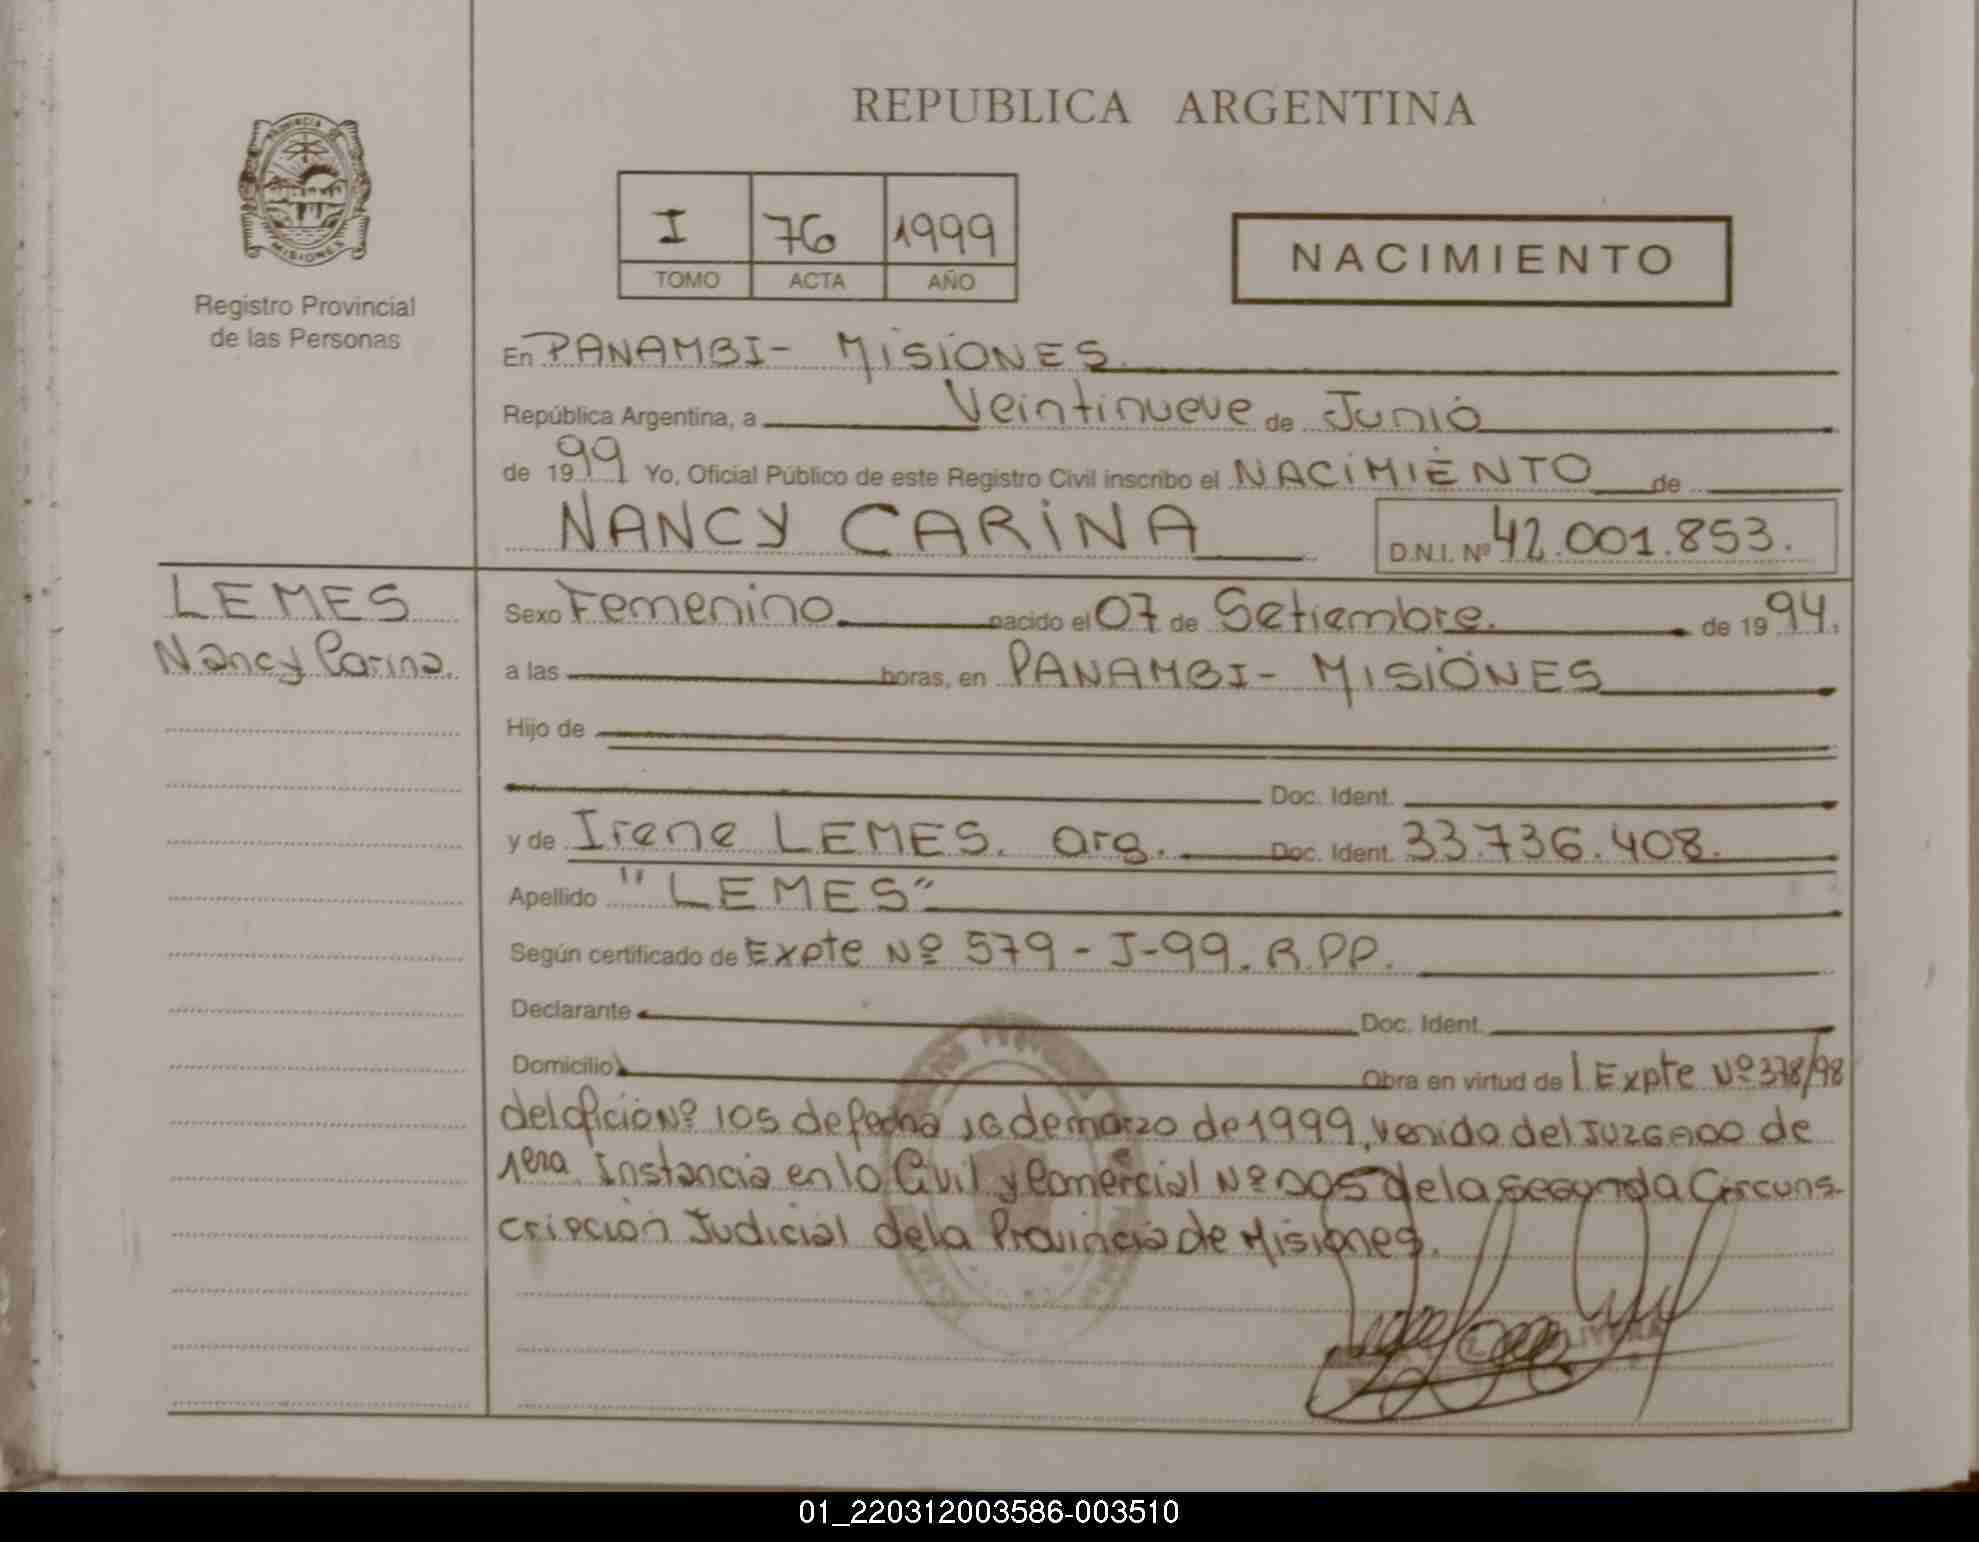 REPUBLICA ARGENTINA
PROVINCIA DE
MISIONES
Registro Provincial
de las Personas
I 76 1999
TOMO ACTA AÑO
NACIMIENTO
En PANAMBI - MISIONES.
República Argentina, a Veintinueve de Junio
de 1999 Yo, Oficial Público de este Registro Civil inscribo el NACIMIENTO de
NANCY CARINA D.N.I. Nº 42.001.853.
LEMES
Nancy Carina.
Sexo Femenino nacido el 07 de Setiembre. de 1994.
a las horas, en PANAMBI - MISIONES
Hijo de
Doc. Ident.
y de Irene LEMES. arg. Doc. Ident. 33.736.408.
Apellido "LEMES"
Según certificado de Expte Nº 579 - J-99. R.PP.
Declarante Doc. Ident.
Domicilio Obra en virtud de l Expte Nº 378/98
del oficio Nº 105 de fecha de marzo de 1999, venido del JUZGADO de
1era Instancia en lo Civil y Comercial Nº de la segunda Circuns-
cripción Judicial de la Provincia de Misiones.
01_220312003586-003510